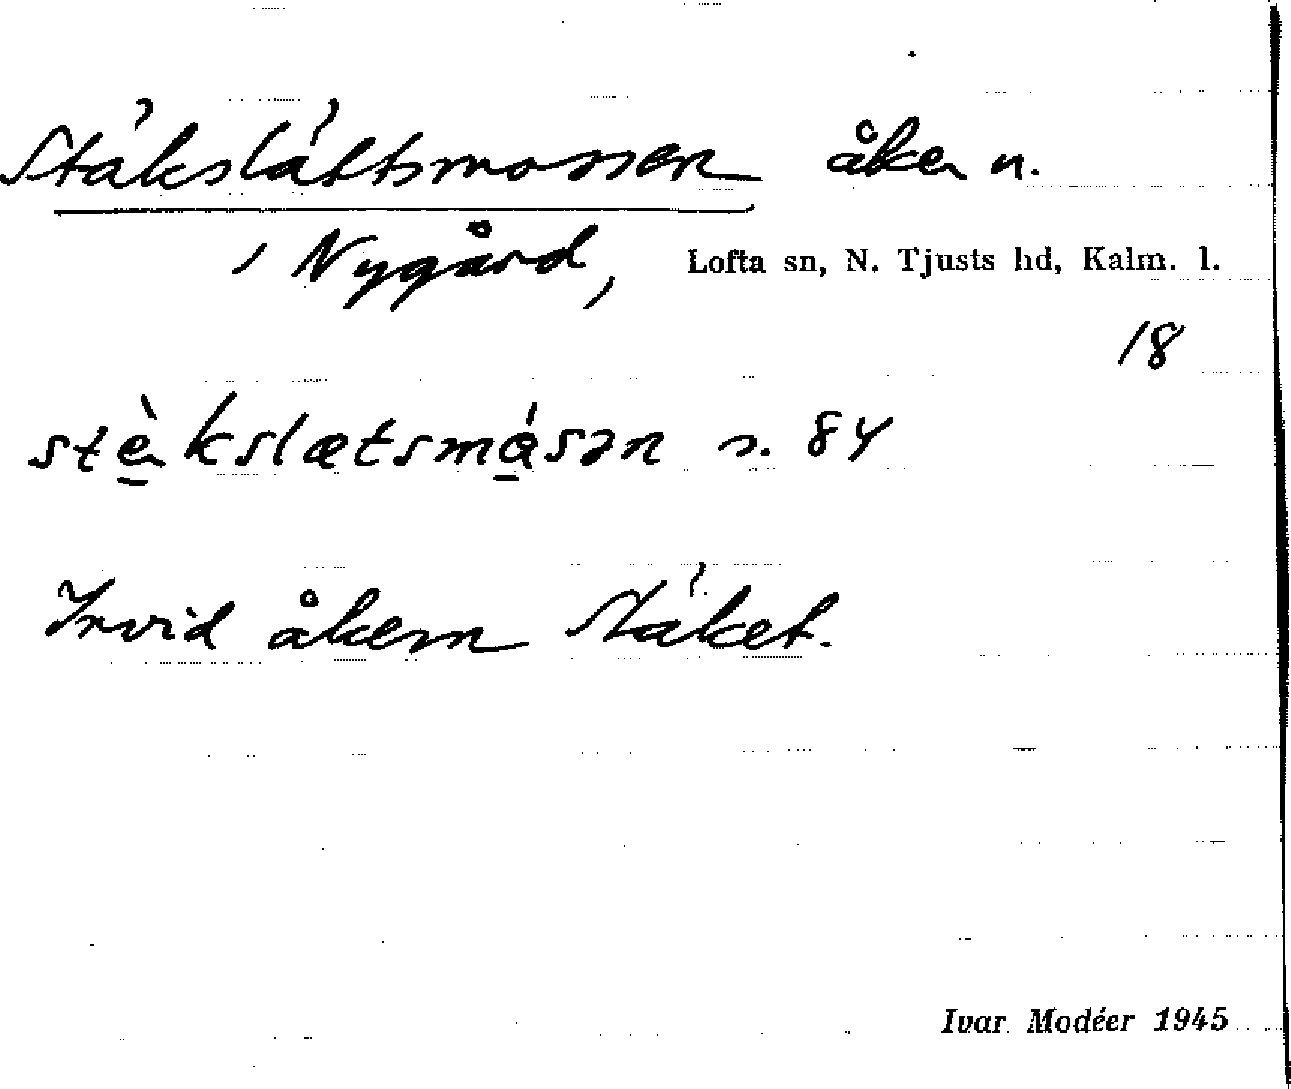 Stäkslättsmossen åker n.
i Nygård, Lofta sn, N. Tjusts hd, Kalm. l.
18
stèkslætsmásən s. 84
Invid åkern Stäket.
Ivar Modéer 1945